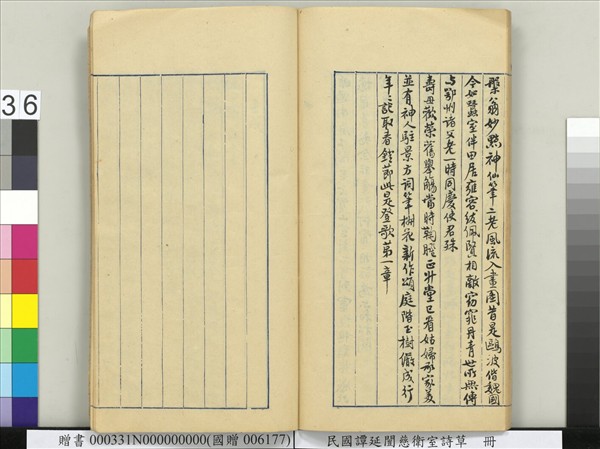 槃翁妙點神仙筆二老風流入畫圖昔是鷗波偕魏國
今如蠶室伴田居雍容紱佩賢相敵窈窕丹青世所無傳
與鄂州諸父老一時同慶使君殊
壽母歡榮舊舉觴當時鞠𦜕正升堂已看姑婦承家美
並有神人駐景方詞筆椒花新作頌庭階玉樹儼成行
年年記取春錢節此是登歌第一章
36
贈書 000331N000000000(國贈 006177)
民國譚延闓慈衛室詩草 冊